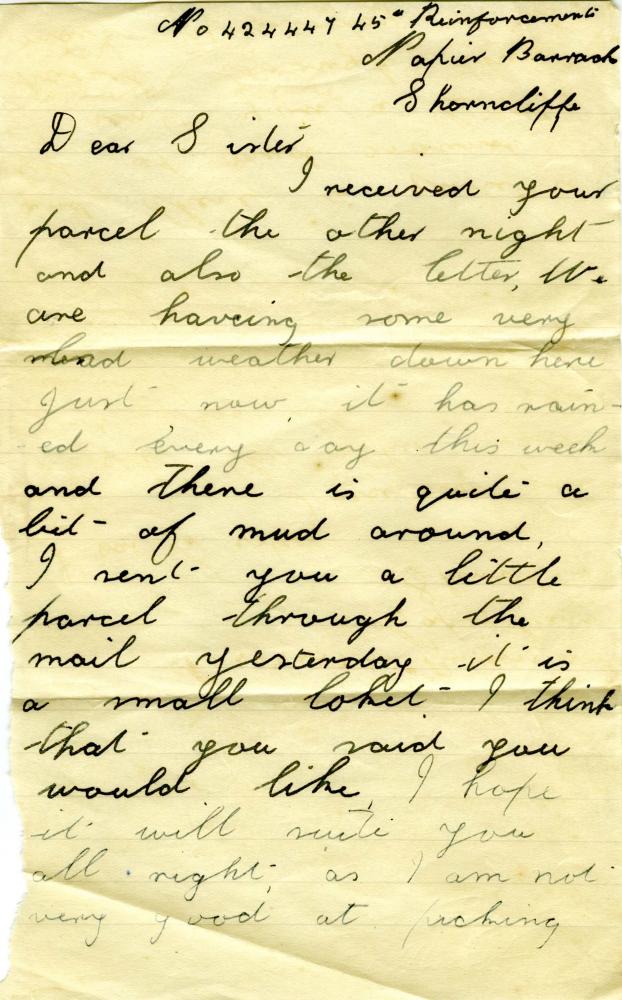 No 424447 45th Reinforcements
Napier Barrack
Shorncliffe
Dear Sister
I received your
parcel the other night
and also the letter, We
are haveing some very
bad weather down here
just now, it has rain-
-ed every day this week
and there is quite a
bit of mud around,
I sent you a little
parcel through the
mail yesterday it is
a small loket I think
that you said you
would like, I hope
it will suite you
all right, as I am not
very good at picking